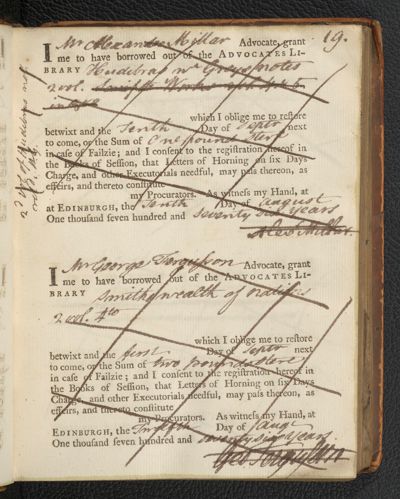 19.
I Mr Alexander Millar Advocate, grant
me to have borrowed out of the ADVOCATES LI-
BRARY Hudebras wt Greys notes
2 vol. Swifts Works
which I oblige me to reſtore
betwixt and the Tenth Day of Septr next
to come, or the Sum of One pound Ster
in caſe of Failzie; and I conſent to the regiſtration hereof in
the Books of Seſſion, that Letters of Horning on ſix Days
Charge, and other Executorials needful, may paſs thereon, as
effeirs, and thereto conſtitute
my Procurators. As witneſs my Hand, at
at EDINBURGH, the Tenth Day of august
One thouſand ſeven hundred and seventy six years
Alexr Millar.
I Mr George Fergusson Advocate, grant
me to have borrowed out of the ADVOCATES LI-
BRARY Smiths wealth of nations
2 vol. 4to
which I oblige me to reſtore
betwixt and the first Day of Septr next
to come, or the Sum of two pounds ster
in caſe of Failzie; and I conſent to the regiſtration hereof in
the Books of Seſſion, that Letters of Horning on ſix Days
Charge, and other Executorials needful, may paſs thereon, as
effeirs, and thereto conſtitute
my Procurators. As witneſs my Hand, at
EDINBURGH, the Twelfth Day of Augt
One thouſand ſeven hundred and seventy six years.
Geo: Fergusson